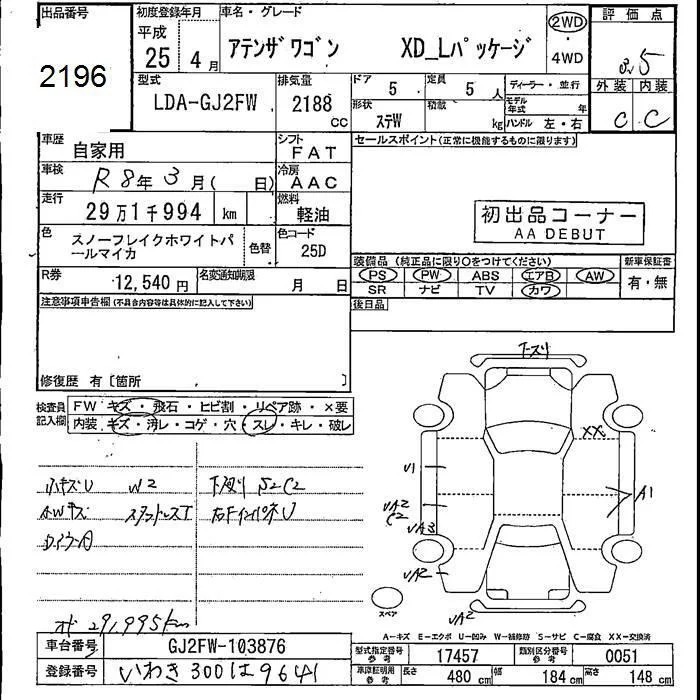 出品番号
2196
初度登録年月
平成
25年 4月
車名・グレード
アテンザワゴン XD_Lパッケージ
2WD
・
4WD
評価点
3.5
外装 内装
C C
型式
LDA-GJ2FW
排気量
2188
CC
ドア 5
定員 5 人
ディーラー・並行
形状 ステW
積載 kg
モデル年式 年
ハンドル 左・右
車歴
自家用
シフト
FAT
セールスポイント(正常に機能するものに限ります)
車検
R8年3月( 日)
冷房
AAC
走行
29万1千994 km
燃料
軽油
初出品コーナー
AA DEBUT
色
スノーフレイクホワイトパ
ールマイカ
色替
色コード
25D
装備品(純正品に限り○をつけてください)
新車保証書
PS PW ABS エアB AW
有・無
SR ナビ TV カワ
R券
12,540円
名変通知期限
月 日
後日品
注意事項申告欄(不具合内容等は具体的に記入して下さい)
修復歴 有〔箇所 〕
検査員
記入欄
FW キズ・飛石・ヒビ割・リペア跡・×要
内装 キズ・汚レ・コゲ・穴・スレ・キレ・破レ
小キズU W2
下スリ S2C2
AWキズ
スタッドレスT
オド 291,995km
下スリ
XX
U1
A1
C2
スペア
A-キズ E-エクボ U-凹み W-補修跡 S-サビ C-腐食 XX-交換済
車台番号
GJ2FW-103876
登録番号
いわき 300 は 9641
型式指定番号
参考
17457
類別区分番号
参考
0051
車庫証明用
参考
長さ 480 cm
幅 184 cm
高さ 148 cm